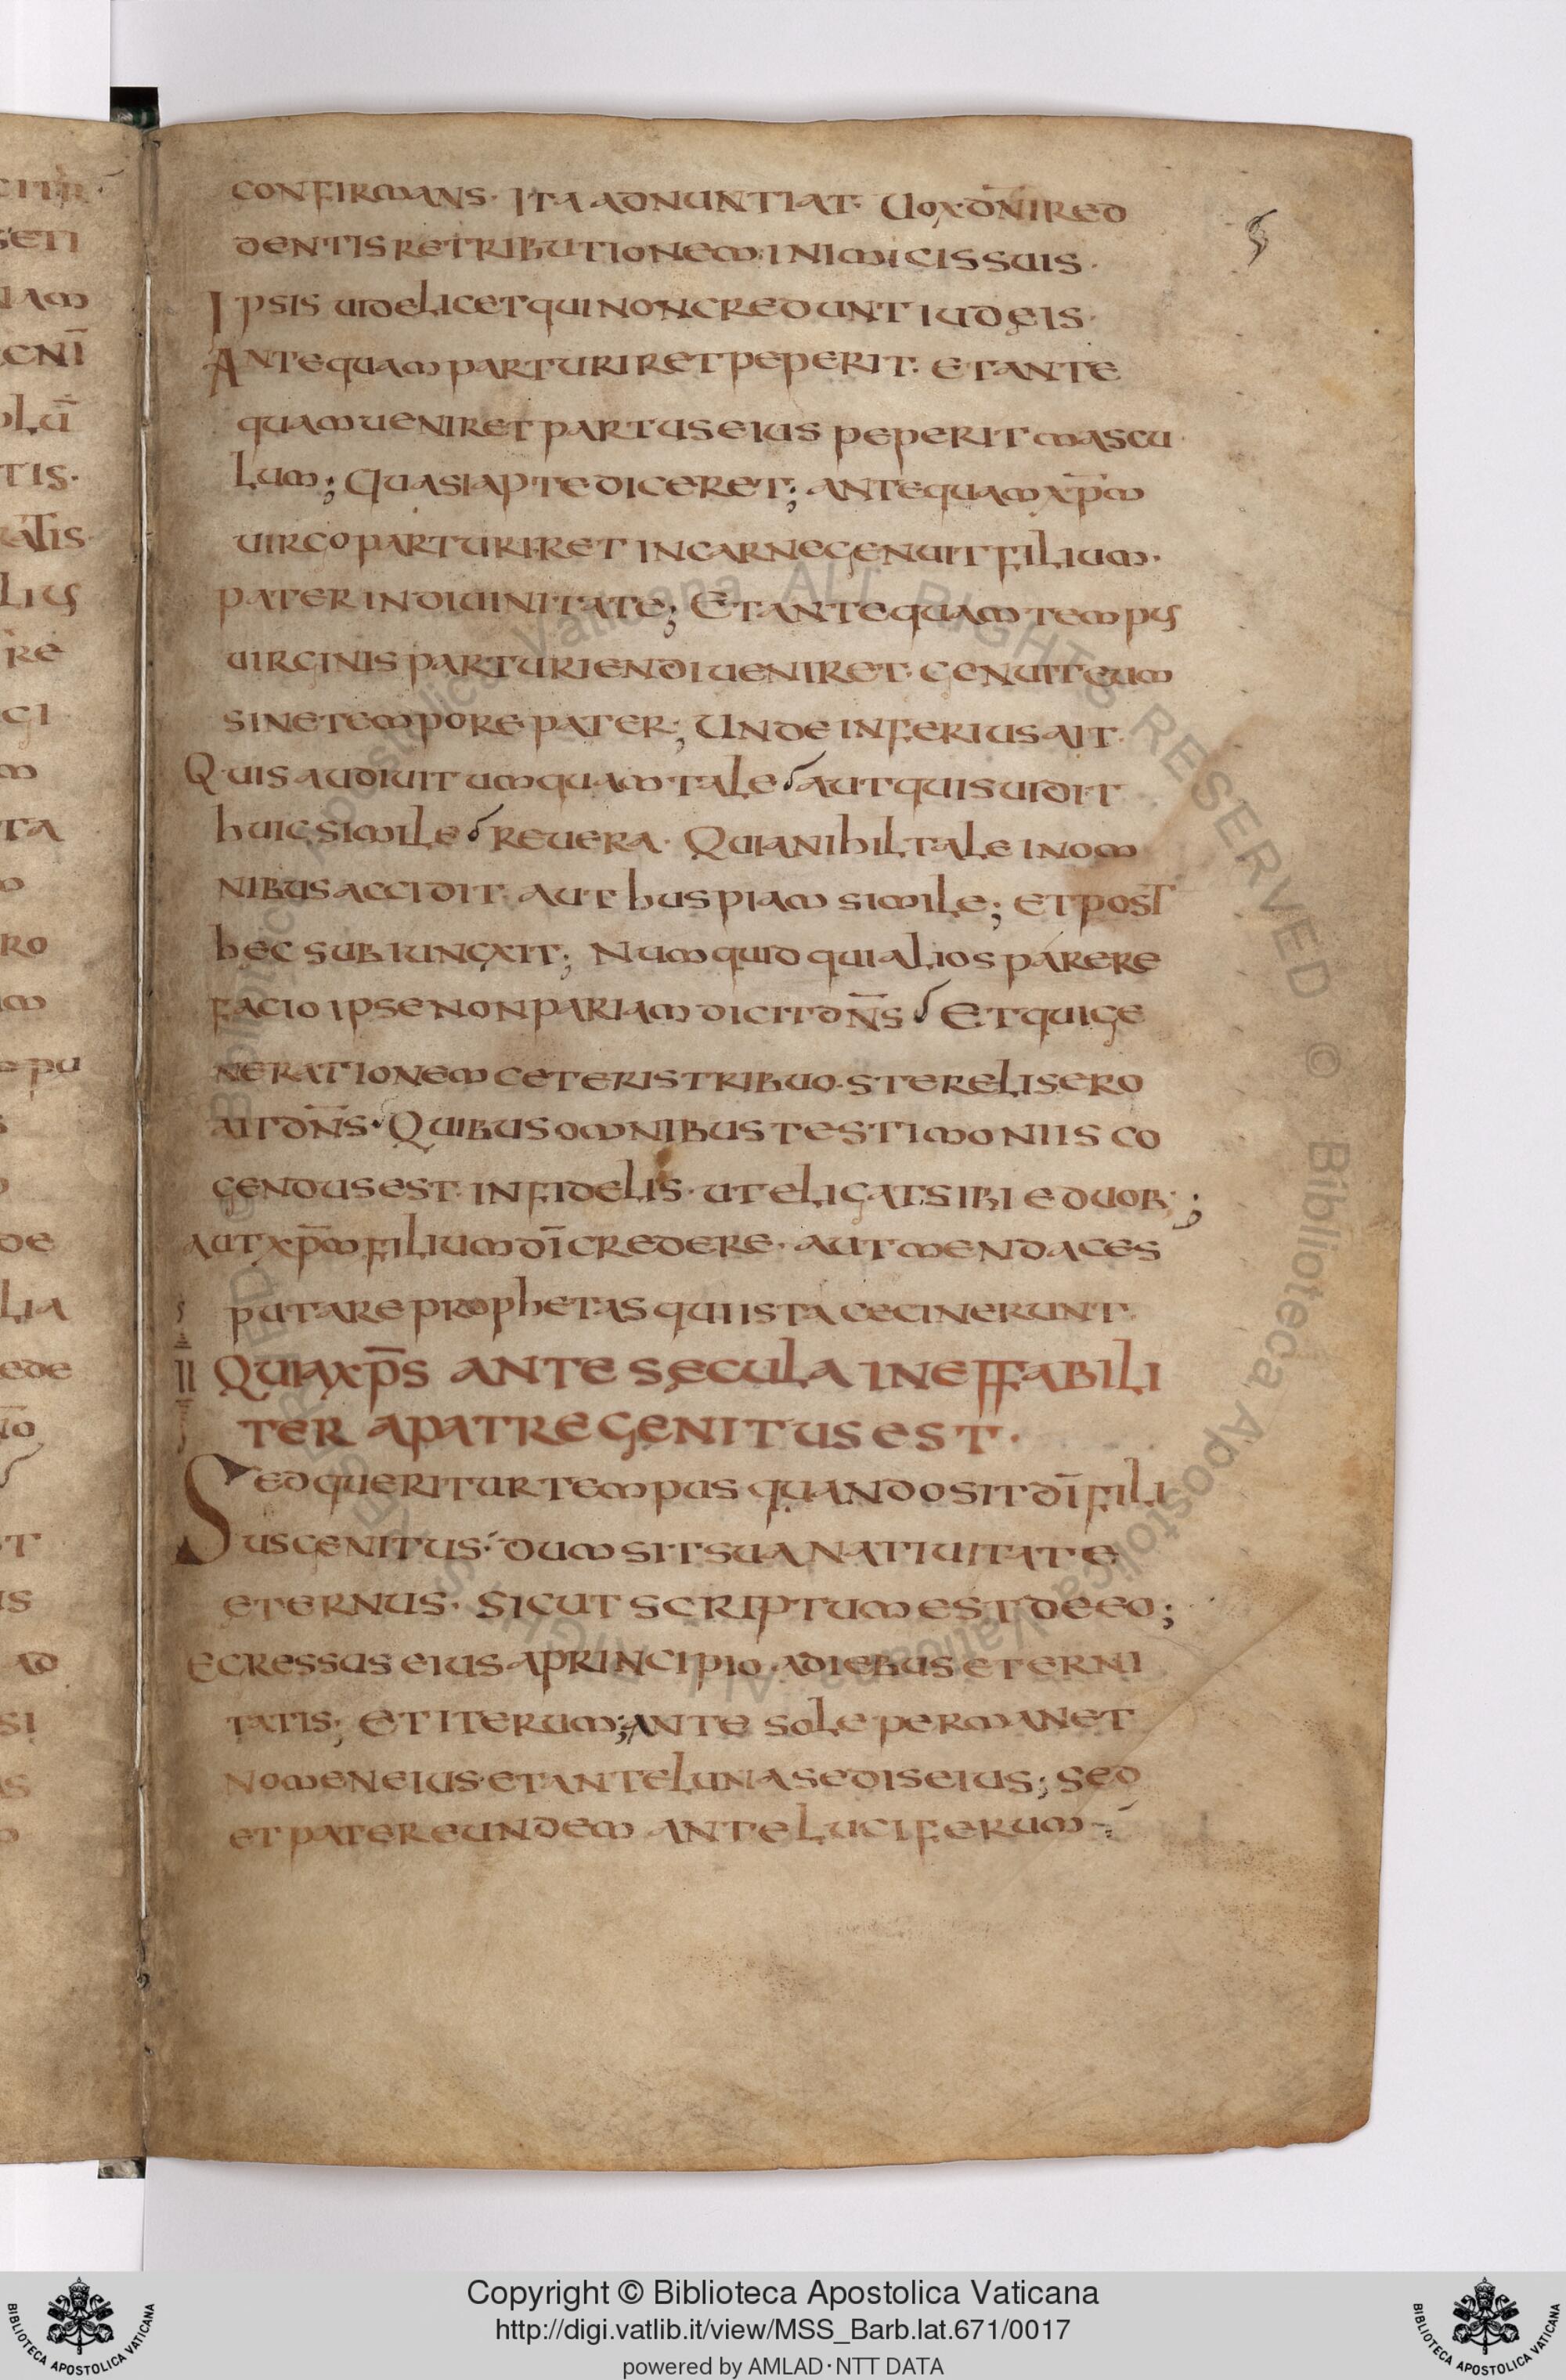 confirmans· Ita adnuntiat· Uox dn̄i red
dentis retributionem inimicis suis·
Ipsis uidelicet qui non credunt iudęis·
Antequam parturiret peperit· et ante
quam ueniret partus eius peperit mascu
lum; Quasi apte diceret; antequam xp̄m
uirgo parturiret in carne genuit filium·
pater in diuinitate; Et antequam tempus
uirginis parturiendi ueniret· genuit eum
sine tempore pater; Unde inferius ait·
Quis audiuit umquam tale? aut quis uidit
huic simile? reuera· Quia nihil tale in om
nibus accidit· aut huspiam simile; et post
hec subiuncxit; Numquid qui alios parere
facio ipse non pariam dicit dn̄s? Et qui ge
nerationem ceteris tribuo· sterelis ero
ait dn̄s· Quibus omnibus testimoniis co
gendus est infidelis· ut eligat sibi e duob·;
aut xp̄m filium dī credere· aut mendaces
putare prophetas qui ista cecinerunt·
II Quia xp̄s ante sęcula ineffabili
ter a patre genitus est·
Sed queritur tempus quando sit dī fili
us genitus· dum sit sua natiuitate
ęternus· sicut scriptum est de eo;
Egressus eius a principio· a diebus eterni
tatis; et iterum; ante sole permanet
nomen eius· et ante luna sedis eius; sed
et pater eundem ante luciferum
5
Copyright © Biblioteca Apostolica Vaticana
http://digi.vatlib.it/view/MSS_Barb.lat.671/0017
powered by AMLAD·NTT DATA
BIBLIOTECA APOSTOLICA VATICANA
BIBLIOTECA APOSTOLICA VATICANA